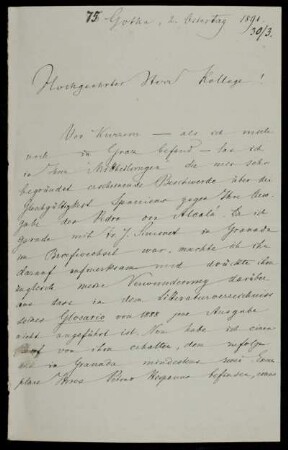 75. Gotha, 2. Ostertag 1891.
30/3.
Hochgeehrter Herr Kollege!
Vor Kurzem — als ich mich
noch in Graz befand — las ich
in den Mittheilungen die mir sehr
begründet erscheinende Beschwerde über die
Gleichgültigkeit Spaniens gegen Ihre Aus-
gabe des Pedro de Alcalá. Da ich
gerade mit F. J. Simonet in Granada
im Briefwechsel war, machte ich ihn
darauf aufmerksam und drückte ihm
zugleich meine Verwunderung darüber
aus dass in dem Litteraturverzeichniss
seines Glosario von 1888 jene Ausgabe
nicht angeführt ist. Nun habe ich einen
Brief von ihm erhalten, dem zufolge
sich in Granada mindestens zwei Exem-
plare Ihres Petrus Hispanus befinden, eines